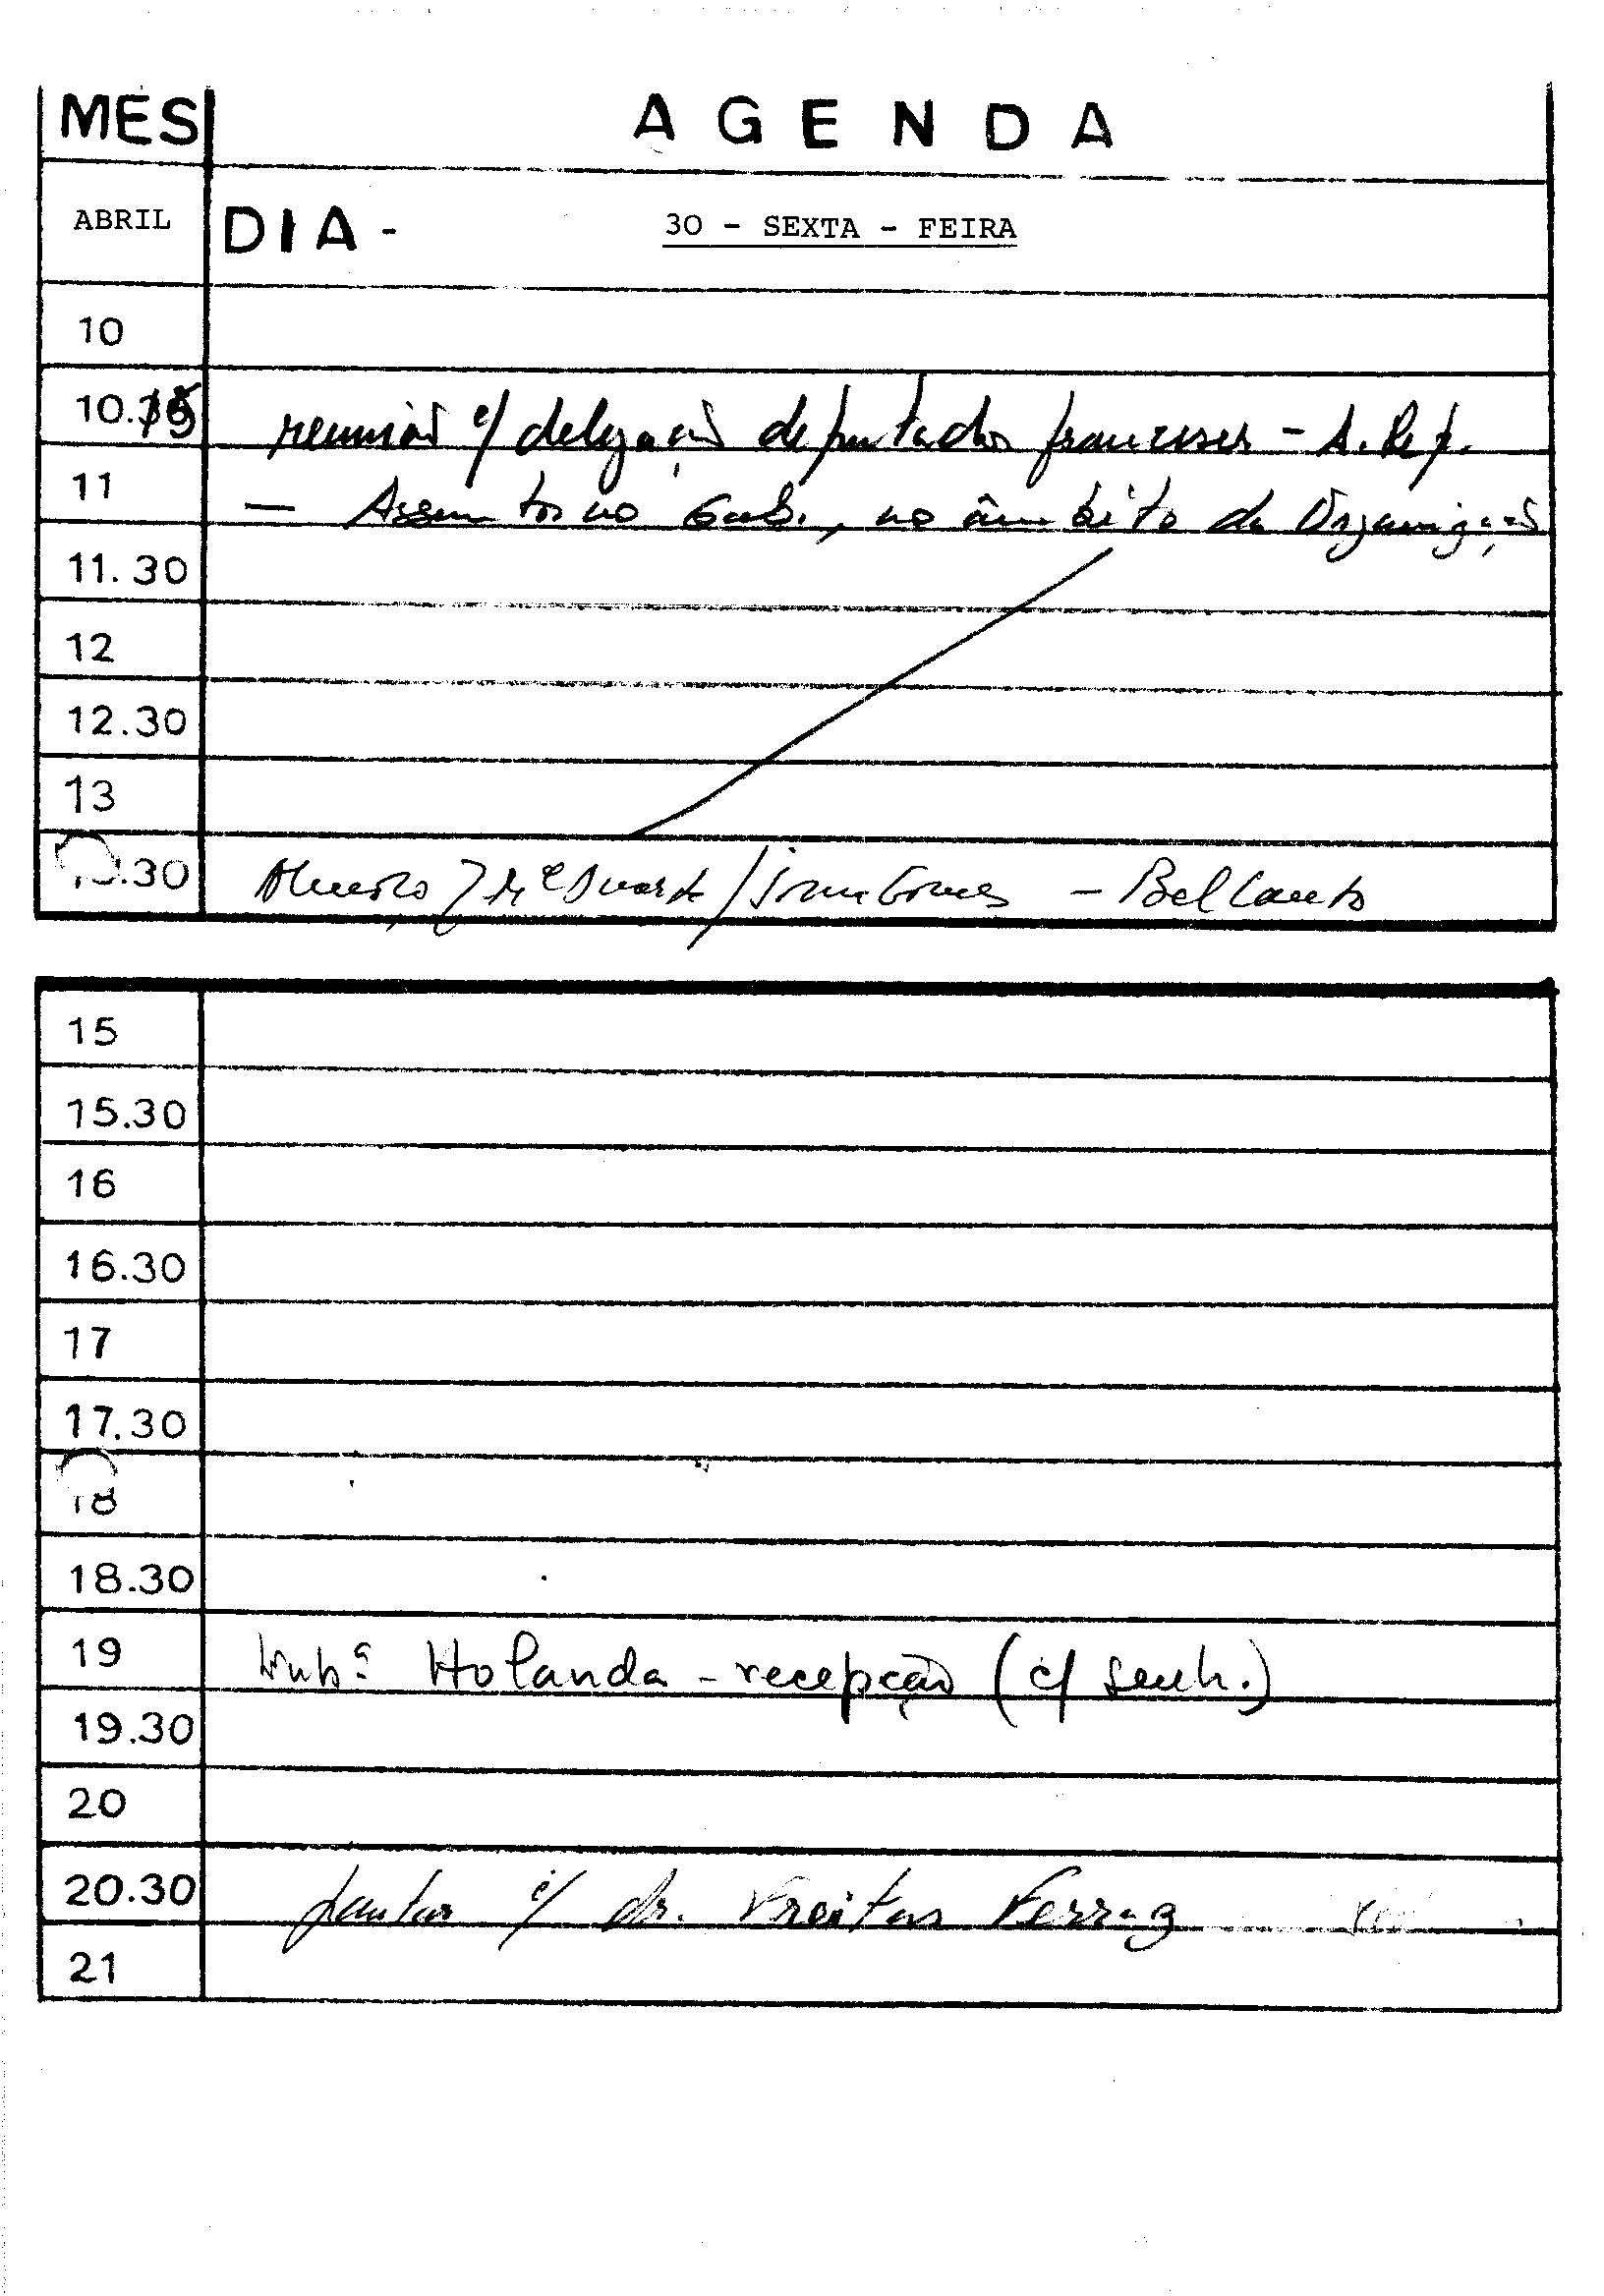 MES AGENDA
ABRIL DIA - 30 - SEXTA - FEIRA
10
10.15 reunião c/ delegação deputados franceses - A. Rep.
11 — Assuntos no Gab., no âmbito da Organização
11.30
12
12.30
13
.30 Almoço / Duarte / Gomes - Bel Canto
15
15.30
16
16.30
17
17.30
18
18.30
19 Holanda - recepção (c/ senh.)
19.30
20
20.30 jantar c/ dr. Freitas Ferraz
21